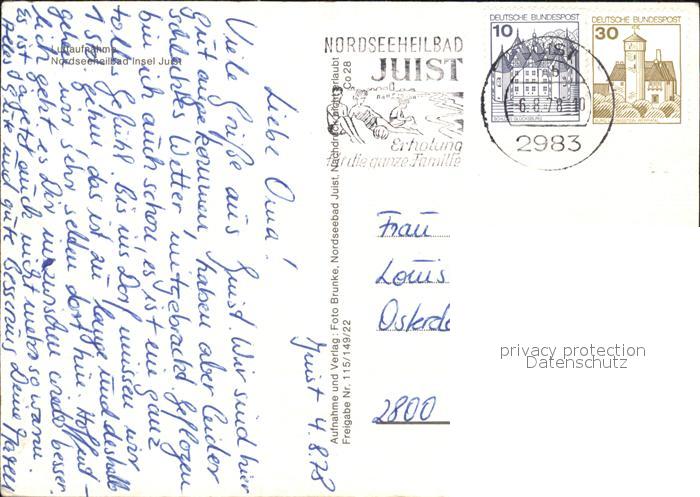 Luftaufnahme
Nordseeheilbad Insel Juist
Juist 4.8.78
Liebe Oma!
Viele Grüße aus Juist. Wir sind hier
gut angekommen, haben aber leider
schlechtes Wetter mitgebracht. Geflogen
bin ich auch schon, es ist ein ganz
tolles Gefühl. Bis ins Dorf müssen wir
1 Std. gehen das ist zu lange und deshalb
gehen wir sehr selten dort hin. Hoffent-
lich geht es Dir inzwischen wieder besser.
Es ist ja jetzt auch nicht mehr so warm.
Alles Gute und gute Besserung Deine
Aufnahme und Verlag: Foto Brunke, Nordseebad Juist, Nachdruck nicht erlaubt
Freigabe Nr. 115/149/22
Co 28
NORDSEEHEILBAD
JUIST
Erholung
für die ganze Familie
DEUTSCHE BUNDESPOST
10
SCHLOSS GLÜCKSBURG
DEUTSCHE BUNDESPOST
30
JUIST
-6.8.78-10
2983
Frau
Louis
Osterde
2800
privacy protection
Datenschutz